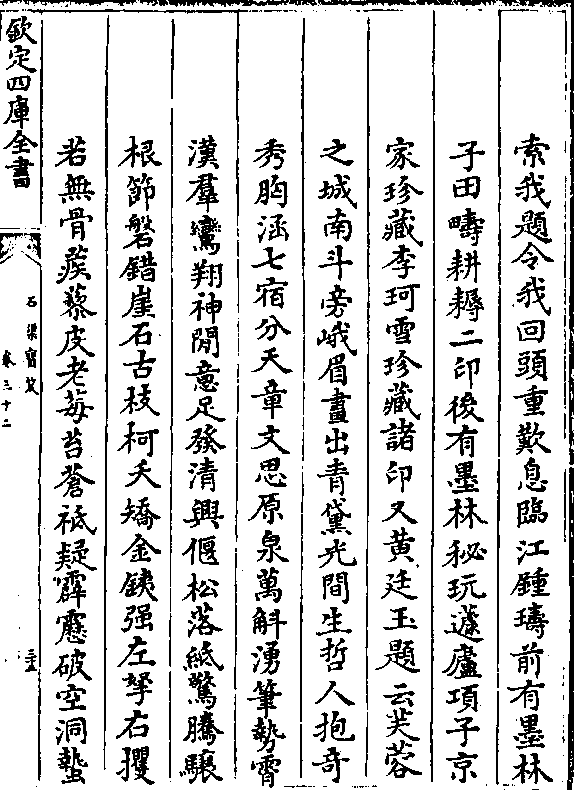 索我題令我回頭重歎息臨江鍾璹前有墨林
子田疇耕耨二印後有墨林秘玩蘧廬項子京
家珍藏李珂雪珍藏諸印又黃廷玉題云芙蓉
之城南斗旁峨眉畫出青黛光間生哲人抱奇
秀胸涵七宿分天章文思原泉萬斛湧筆勢霄
漢羣鸞翔神閒意足發清興偃松落紙驚騰驤
根節磐錯崖石古枝柯夭矯金鐵强左拏右攫
若無骨蒺藜皮老莓苔蒼祗疑霹靂破空洞蟄
欽定四庫全書
石渠寶笈
卷三十二
三五